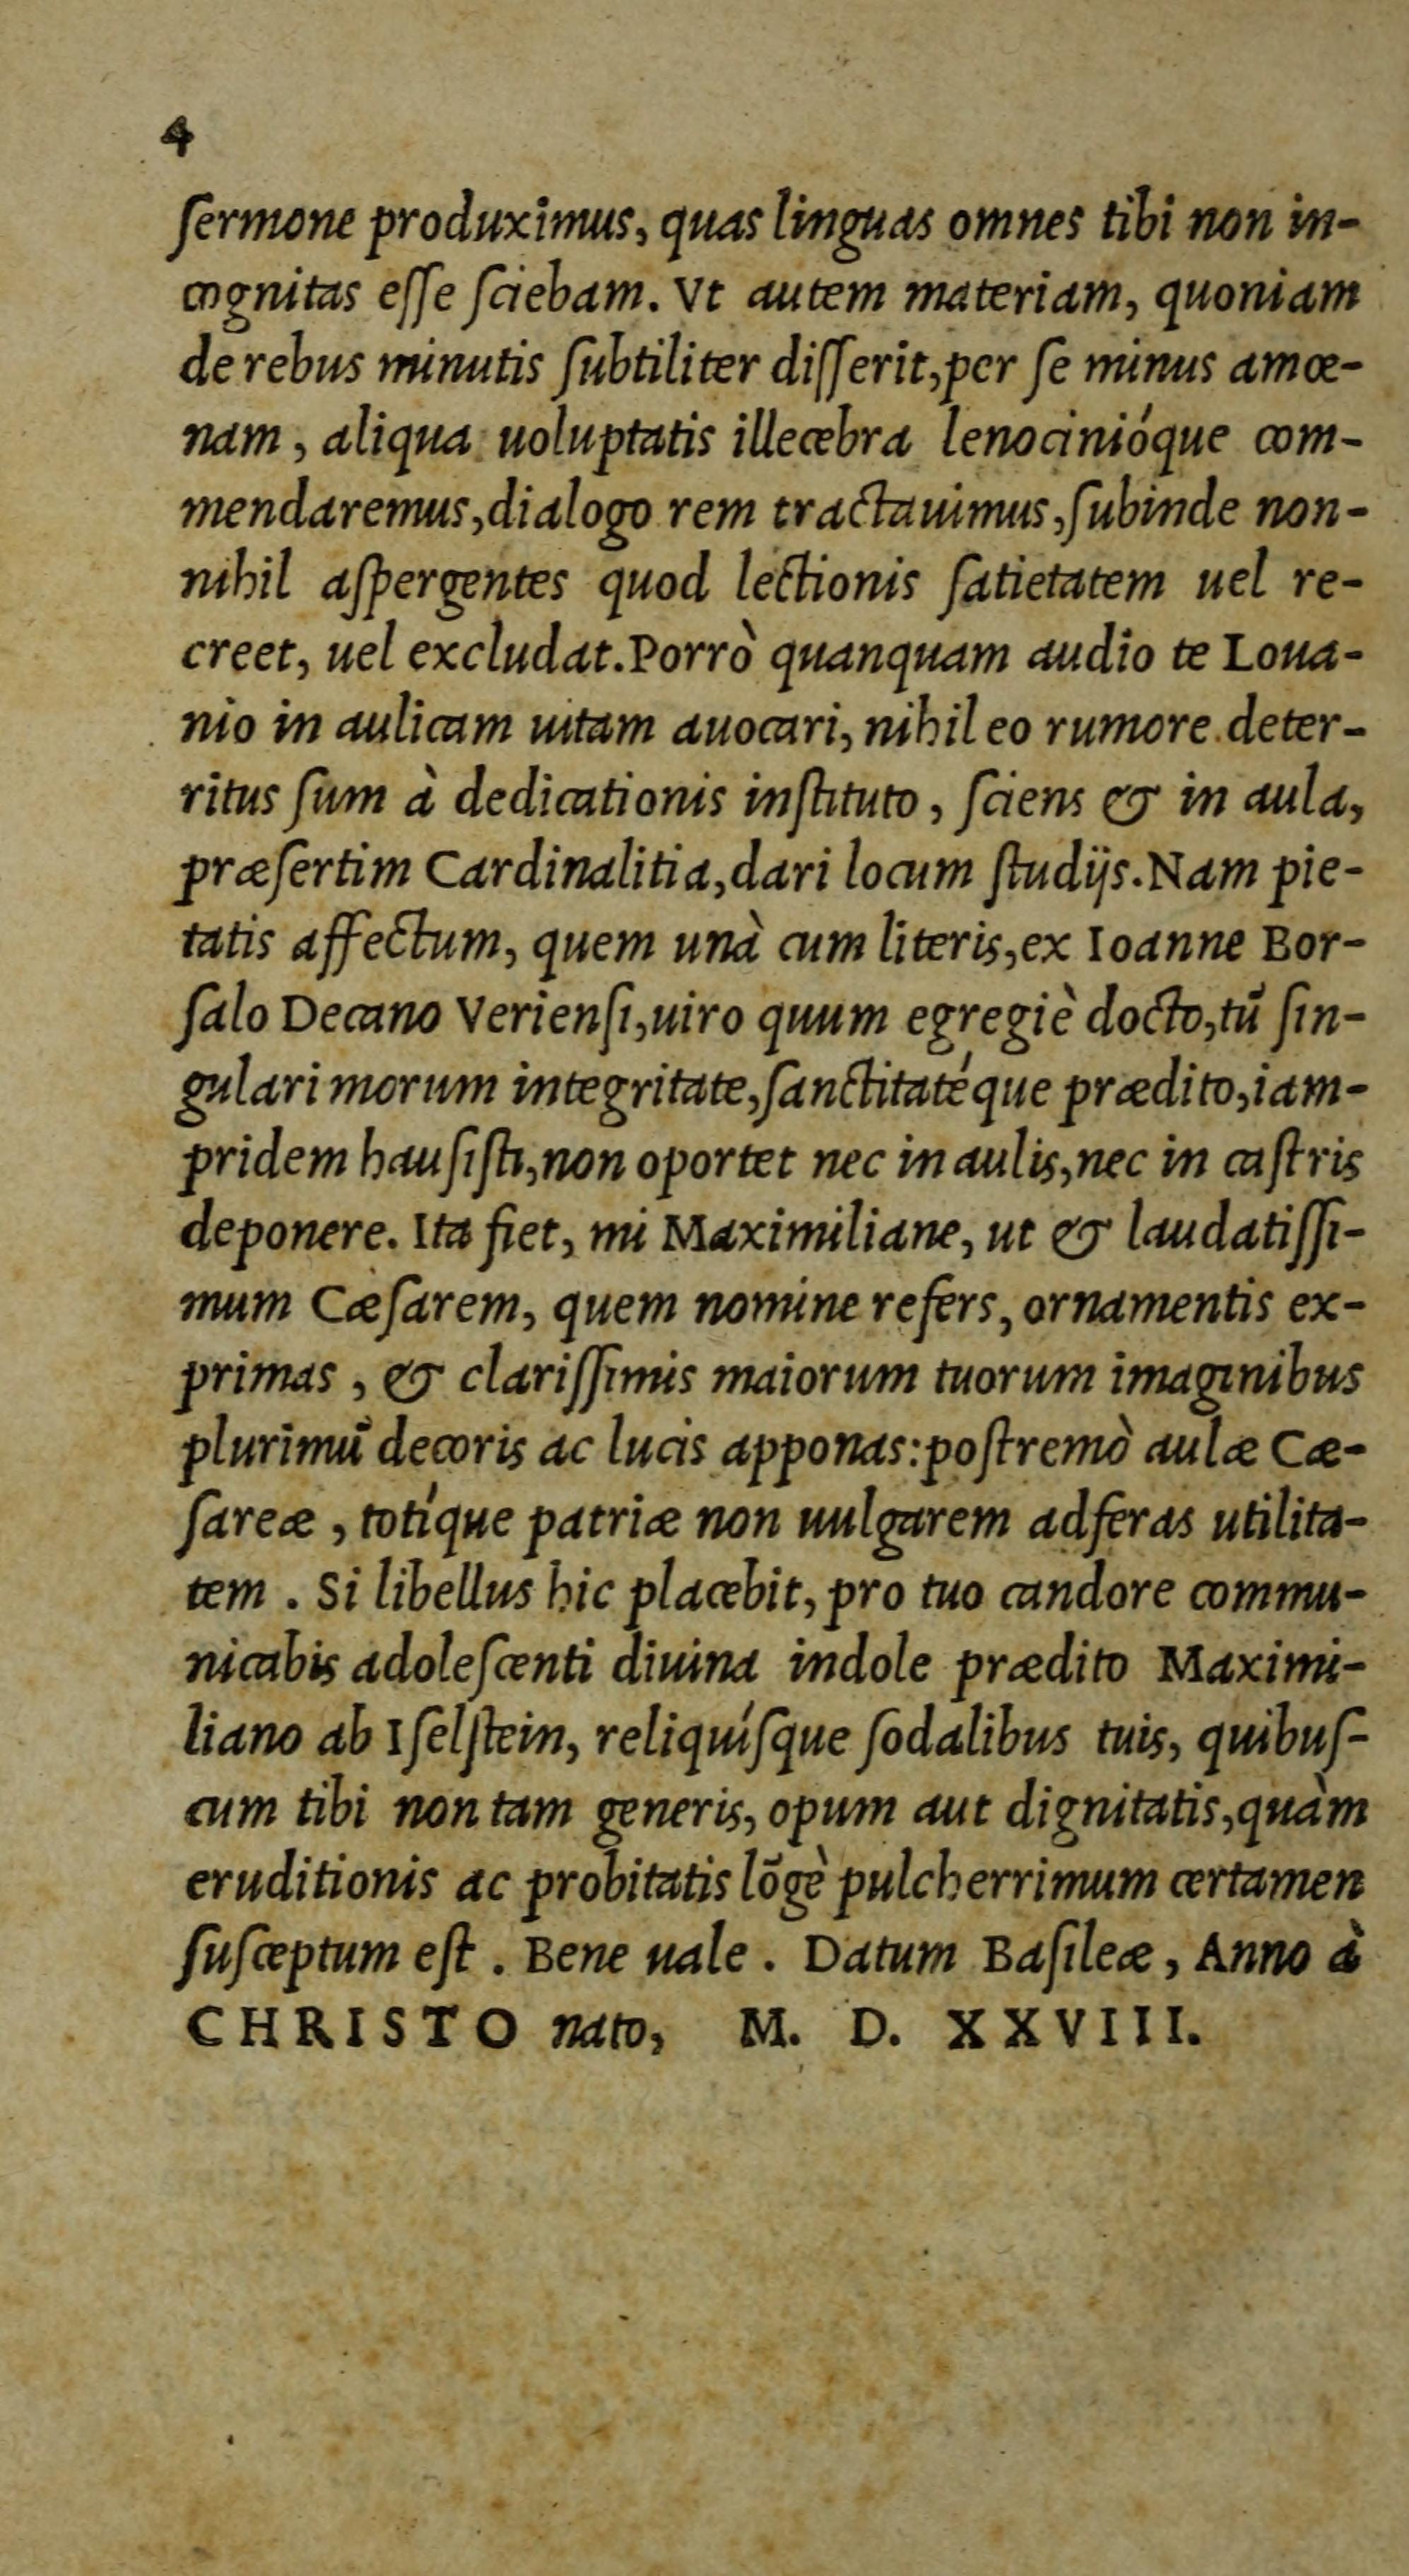 4
ſermone produximus, quas linguas omnes tibi non in-
cognitas eſſe ſciebam. Vt autem materiam, quoniam
de rebus minutis ſubtiliter diſſerit, per ſe minus amœ-
nam, aliqua uoluptatis illecebra lenocinióque com-
mendaremus, dialogo rem tractauimus, ſubinde non-
nihil aſpergentes quod lectionis ſatietatem uel re-
creet, uel excludat. Porrò quanquam audio te Loua-
nio in aulicam uitam auocari, nihil eo rumore deter-
ritus ſum à dedicationis inſtituto, ſciens & in aula,
præſertim Cardinalitia, dari locum ſtudijs. Nam pie-
tatis affectum, quem unà cum literis, ex Ioanne Bor-
ſalo Decano Verienſi, uiro quum egregiè docto, tũ ſin-
gulari morum integritate, ſanctitatéque prædito, iam-
pridem hauſiſti, non oportet nec in aulis, nec in caſtris
deponere. Ita fiet, mi Maximiliane, ut & laudatiſſi-
mum Cæſarem, quem nomine refers, ornamentis ex-
primas, & clariſſimis maiorum tuorum imaginibus
plurimũ decoris ac lucis apponas: poſtremò aulæ Cæ-
ſareæ, totíque patriæ non uulgarem adferas utilita-
tem. Si libellus hic placebit, pro tuo candore commu-
nicabis adoleſcenti diuina indole prædito Maximi-
liano ab Iſelſtein, reliquíſque ſodalibus tuis, quibuſ-
cum tibi non tam generis, opum aut dignitatis, quàm
eruditionis ac probitatis lõgè pulcherrimum certamen
ſuſceptum eſt. Bene uale. Datum Baſileæ, Anno à
CHRISTO nato, M. D. XXVIII.